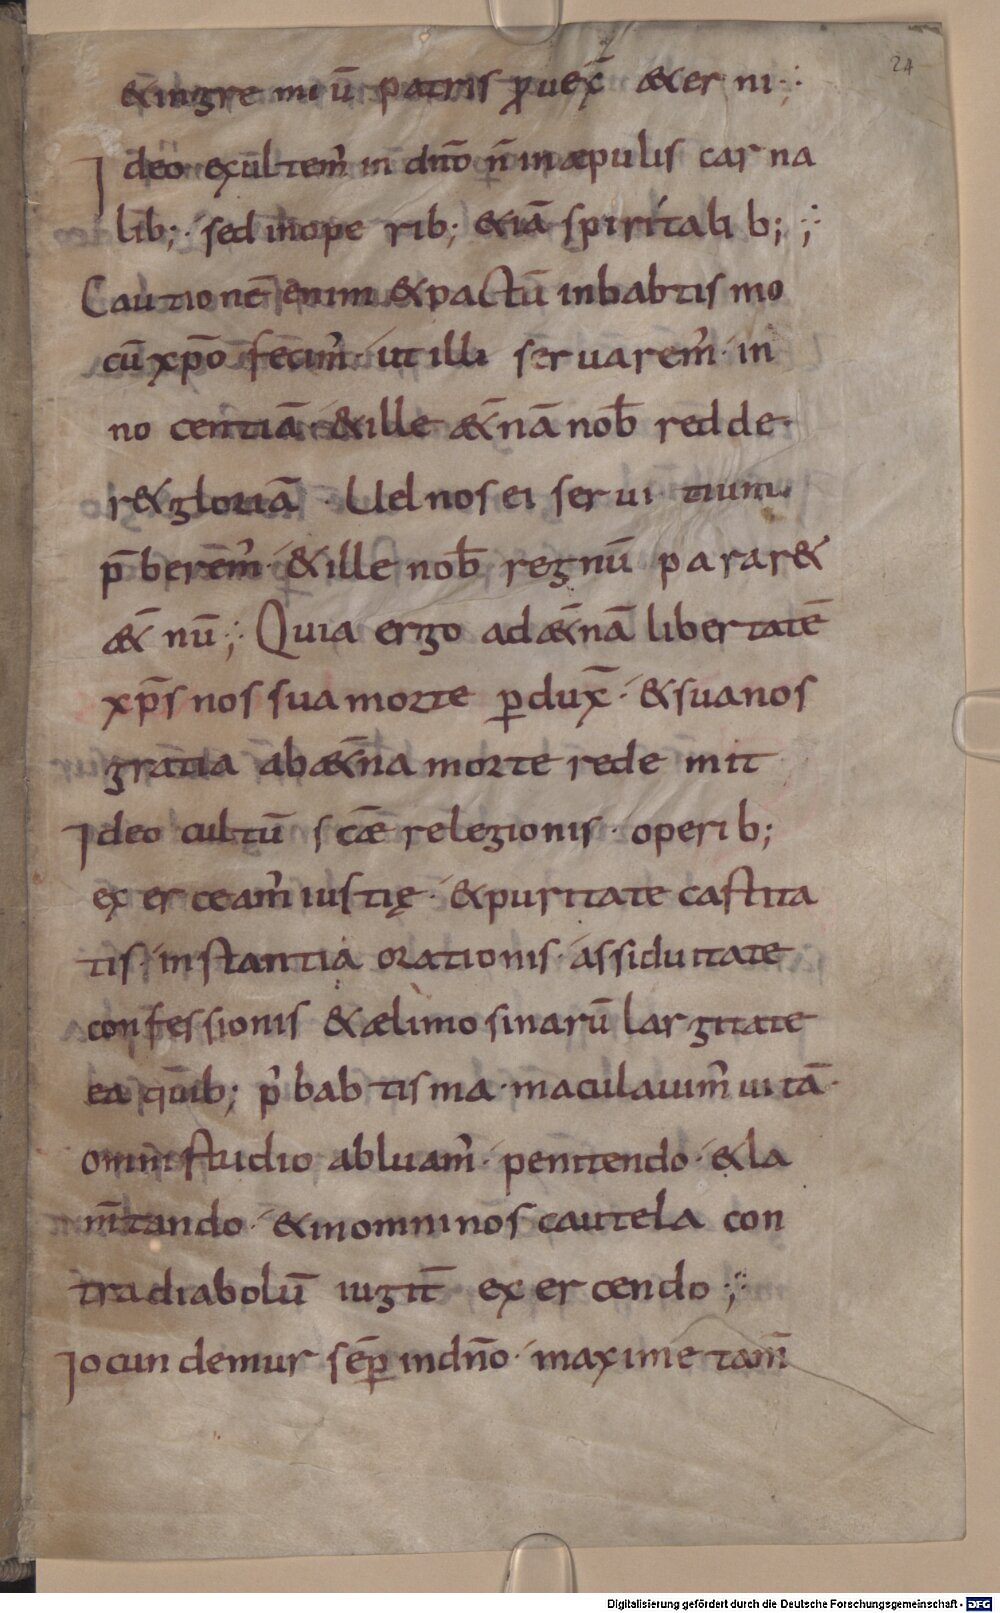 24
&ingremiū patris ꝓuex̄ æ&erni ·:·
Ideo exultem᷒ in dn̄o n̄ in æpulis carna
lib; · sed in operib; &iā spiritalib; ·:·
Cautionē enim & pactū in babtismo
cū xp̄o fecim᷒ · ut illi seruarem᷒ in
nocentiā · & ille æ&̄nā nob̄ redde
r& gloriā · Uel nos ei seruitium
p̄berem᷒ · & ille nob̄ regnū parar&
æ&̄nū ·:· Quia ergo ad æ&̄nā libertatē
xp̄s nos sua morte ꝑdux̄ · & sua nos
gratia ab æ&̄na morte redemit
Ideo cultū sc̄æ relegionis · operib;
exerceam᷒ iustię · & puritate castita
tis · instantia orationis · assiduitate
confessionis & ælimosinarū largitate
ea quib; p᷒ babtisma · maculauim᷒ uitā ·
omni studio abluam᷒ · penitendo · & la
m̄tando · & in omni nos cautela con
tra diabolū iugit̄ exercendo ·:·
Iocundemur sēꝑ in dn̄o · maxime tam̄
Digitalisierung gefördert durch die Deutsche Forschungsgemeinschaft - DFG